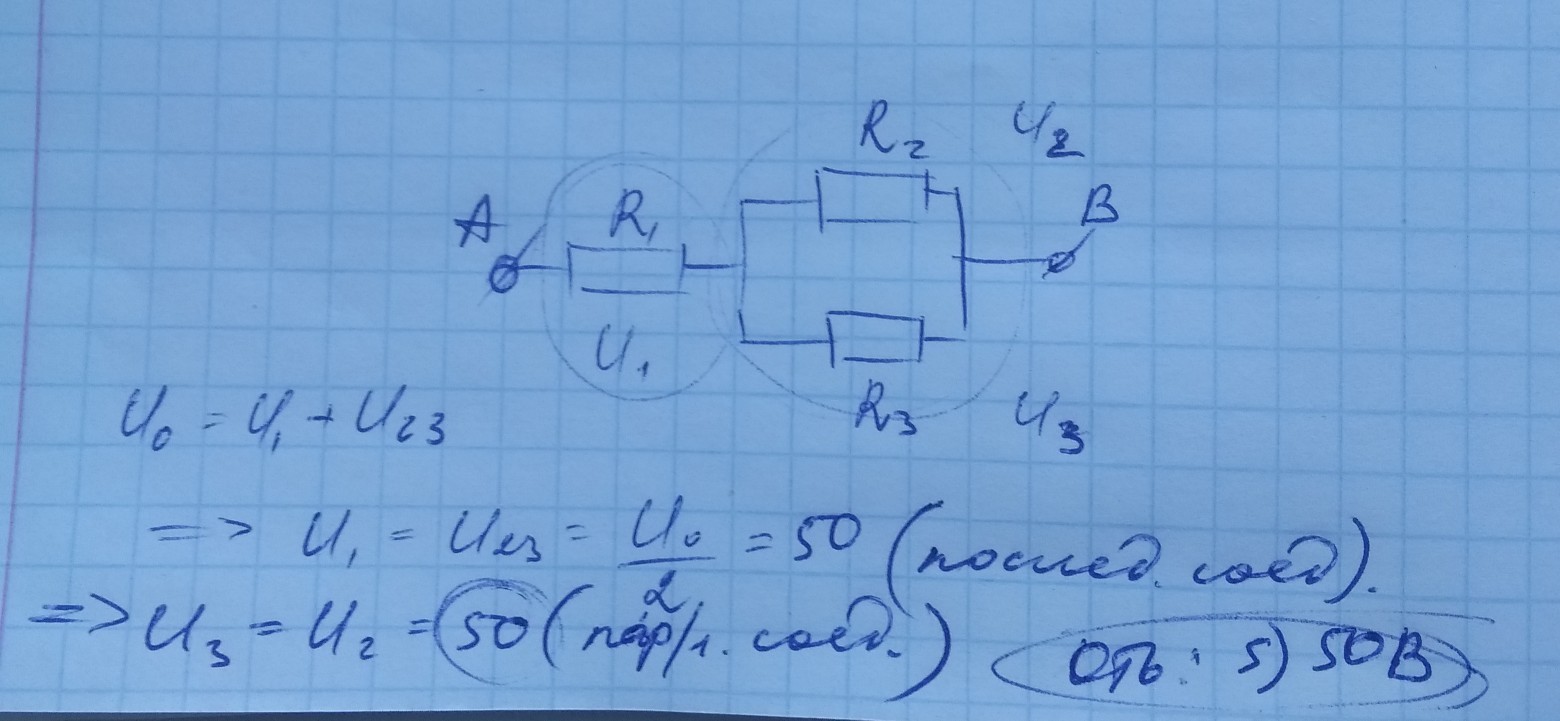 R₂ U₂
A R₁ B
U₁
R₃ U₃
U₀ = U₁ + U₂₃
=> U₁ = U₂₃ = U₀/2 = 50 (послед. соед).
=> U₃ = U₂ = 50 (пар/л. соед.) Отв: 5) 50В